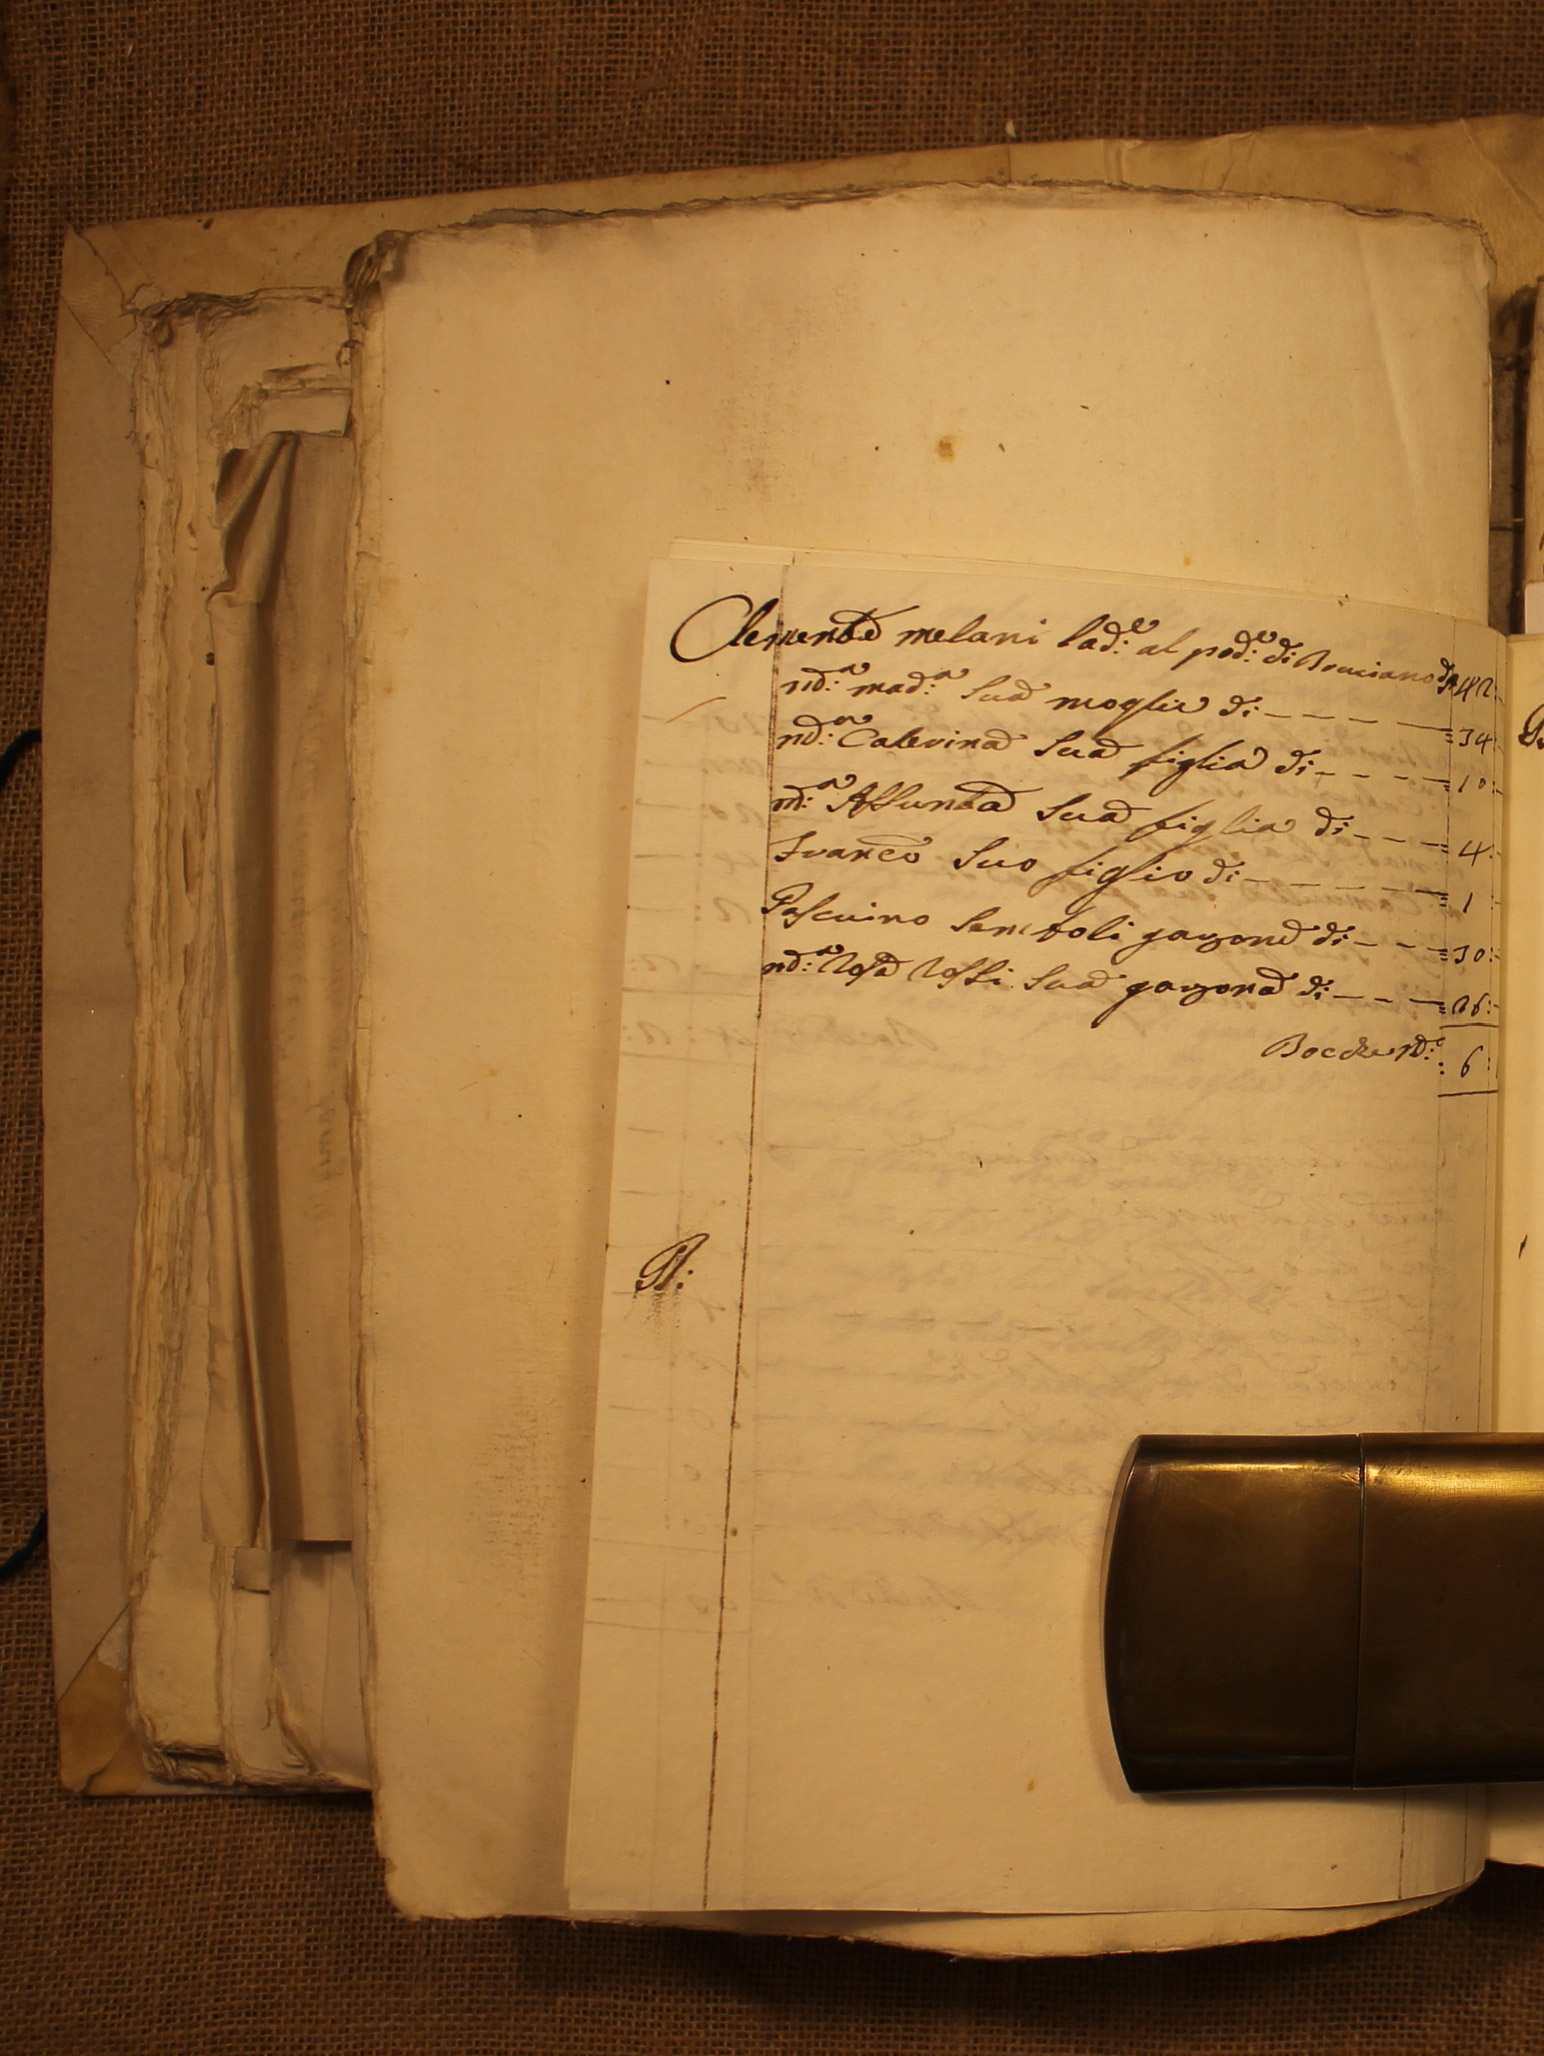 Clemente melani lad:e al pod:e di Bruciano di 42
nd:a mad:a Sua moglie di - - - - = 34:
nd:a Caterina Sua figlia di - - - - = 10:
nd:a Assunta Sua figlia di - - - 4:
Franco Suo figlio di - - - - = 1
Pascuino Santoli garzone di - - - = 30:
nd:a Rosa Rossi Sua garzona di - - - = 26:
Bocche N:o : 6: